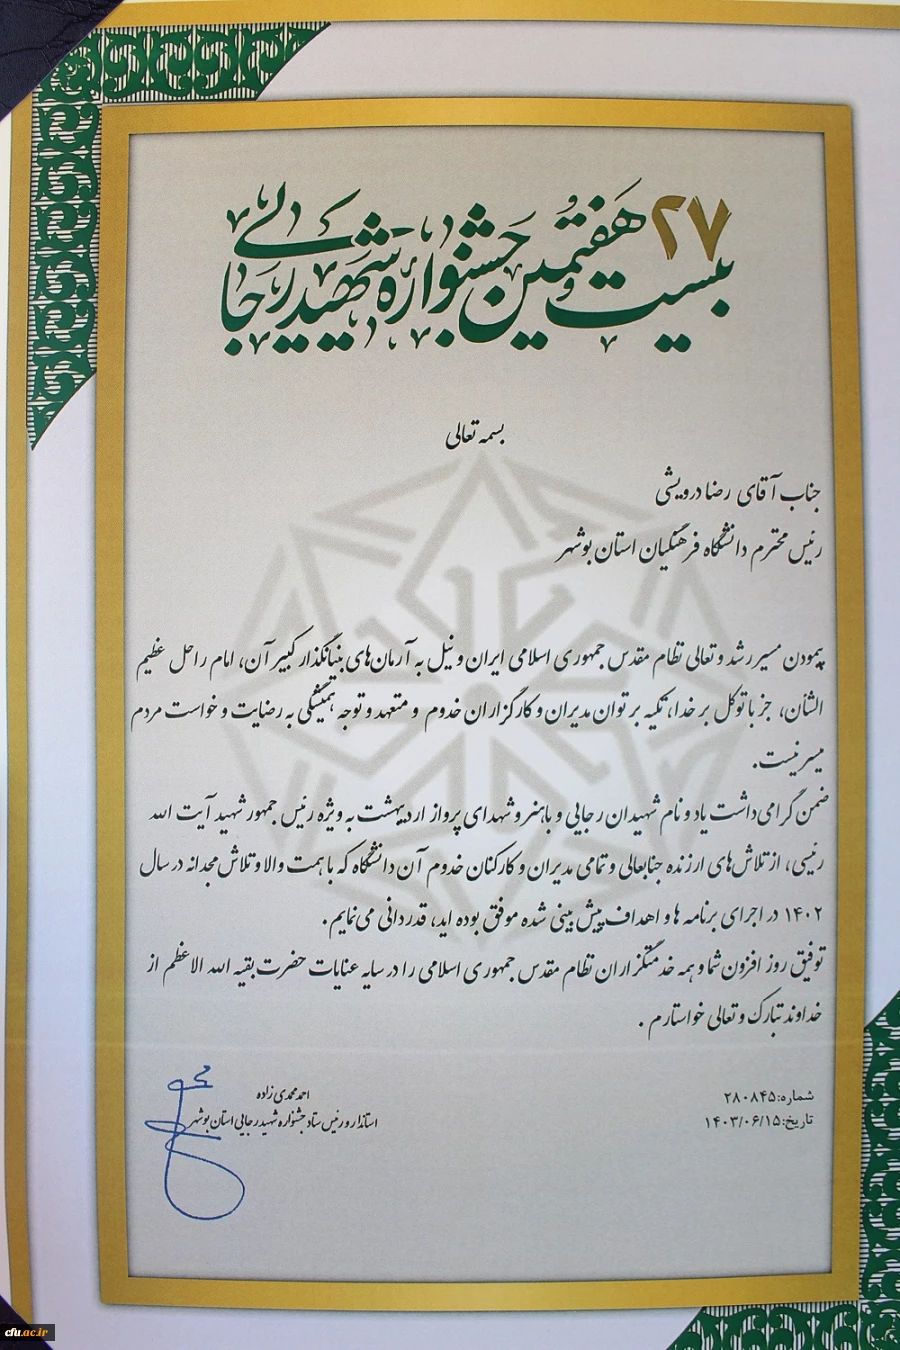 ۲۷
بیست و هفتمین جشنواره شهید رجایی
بسمه تعالی
جناب آقای رضا درویشی
رئیس محترم دانشگاه فرهنگیان استان بوشهر
پیمودن مسیر رشد و تعالی نظام مقدس جمهوری اسلامی ایران و نیل به آرمان‌های بنیانگذار کبیر آن، امام راحل عظیم
الشأن، جز با توکل بر خدا، تکیه بر توان مدیران و کارگزاران خدوم و متعهد و توجه همیشگی به رضایت و خواست مردم
میسر نیست.
ضمن گرامی‌داشت یاد و نام شهیدان رجایی و باهنر و شهدای پرواز اردیبهشت به ویژه رئیس جمهور شهید آیت الله
رئیسی، از تلاش‌های ارزنده جنابعالی و تمامی مدیران و کارکنان خدوم آن دانشگاه که با همت والا و تلاش مجدانه در سال
۱۴۰۲ در اجرای برنامه ها و اهداف پیش بینی شده موفق بوده اید، قدردانی می‌نمایم.
توفیق روز افزون شما و همه خدمتگزاران نظام مقدس جمهوری اسلامی را در سایه عنایات حضرت بقیه الله الاعظم از
خداوند تبارک و تعالی خواستارم .
شماره: ۲۸۰۸۴۵
تاریخ: ۱۴۰۳/۰۶/۱۵
احمد محمدی زاده
استاندار و رئیس ستاد جشنواره شهید رجایی استان بوشهر
cfu.ac.ir